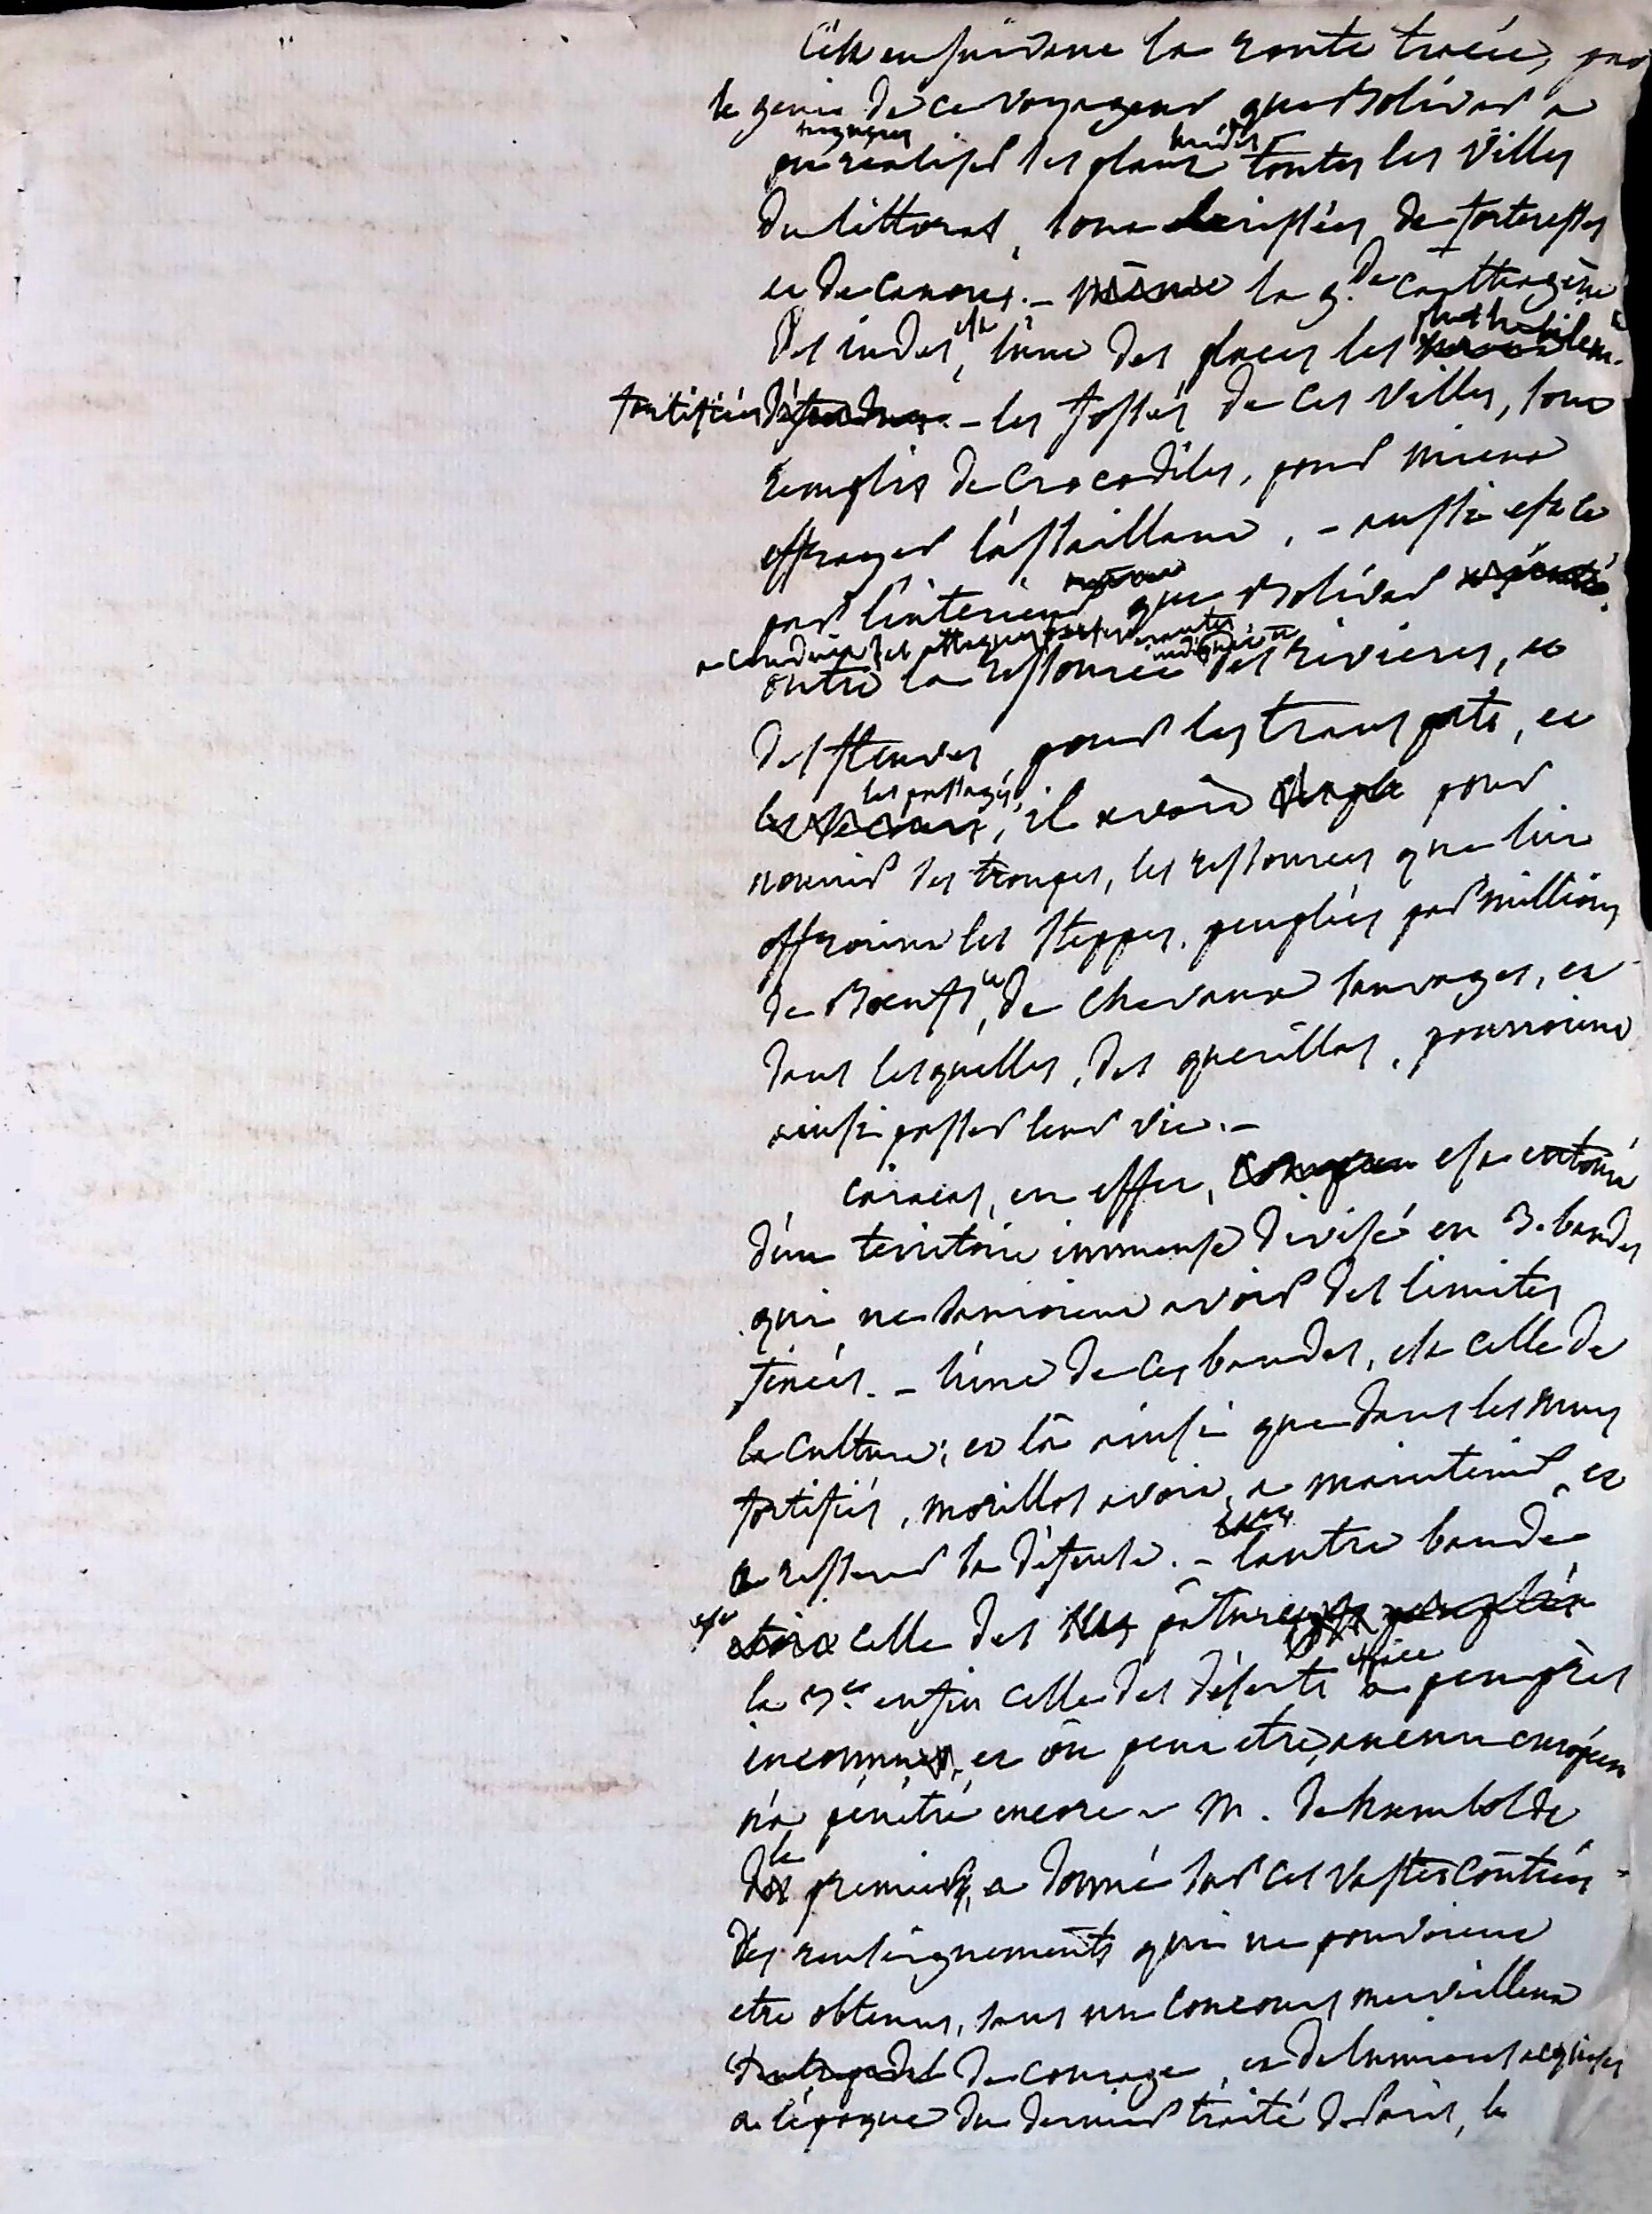 C'est en suivant la route tracée, par
le genie de ce voyageur que Bolivar a
pu realiser ses plans toutes les villes
du littoral, sont herissées de forteresses
et de canons. - la g.de Carthagène
des indes, est l'une des places les plus habilem.
fortifiées - les fossés de ces villes, sont
remplis de crocodiles, pour mieux
effrayer l'assaillant, - aussi est ce
par l'interieur que Bolivar
a conduit ses attaques
outre la ressource des rivieres, et
des fleuves, pour les transports, et
les passages, il avoit pour
nourrir ses troupes, les ressources que lui
offroient les steppes, peuplées par millions
de Boeufs, et de chevaux sauvages, et
dans lesquelles, des guerillas, pourroient
ainsi passer leur vie. -
Caracas, en effet, est entouré
d'un territoire immense divisé en 3. bandes
qui ne sauroient avoir des limites
fixées. - l'une de ces bandes, est celle de
la culture; et là ainsi que dans les murs
fortifiés, morillos avoit, a maintenir et
a resserrer sa défense. - l'autre bande
est celle des pâturages
la 3.e enfin celle des déserts a peu près
inconnus, et où peut etre, aucun européen
n'a pénétré encore - M. de humboldt
le premier, a donné sur ces vastes contrées
des renseignements qui ne pouvoient
etre obtenus, sans un concours merveilleux
de courage, et de lumieres acquises
a l'époque du dernier traité de Paris, le